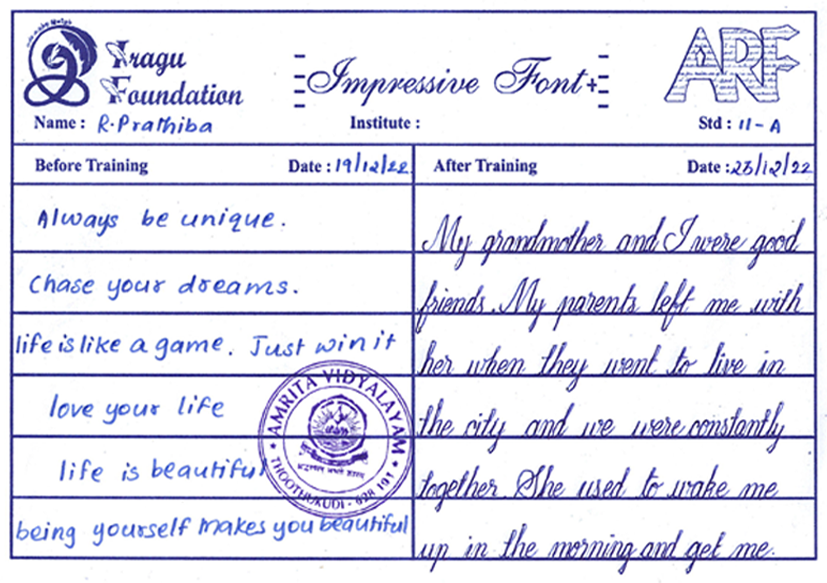 Iragu
Foundation
Impressive Font
ARF
Name : R. Prathiba
Institute :
Std : 11 - A
Before Training
Date : 19/12/22
After Training
Date : 23/12/22
Always be unique.
Chase your dreams.
life is like a game. Just win it
love your life
life is beautiful
being yourself makes you beautiful
My grandmother and I were good
friends. My parents left me with
her when they went to live in
the city and we were constantly
together. She used to wake me
up in the morning and get me.
AMRITA VIDYALAYAM
THOOTHUKUDI - 628 101